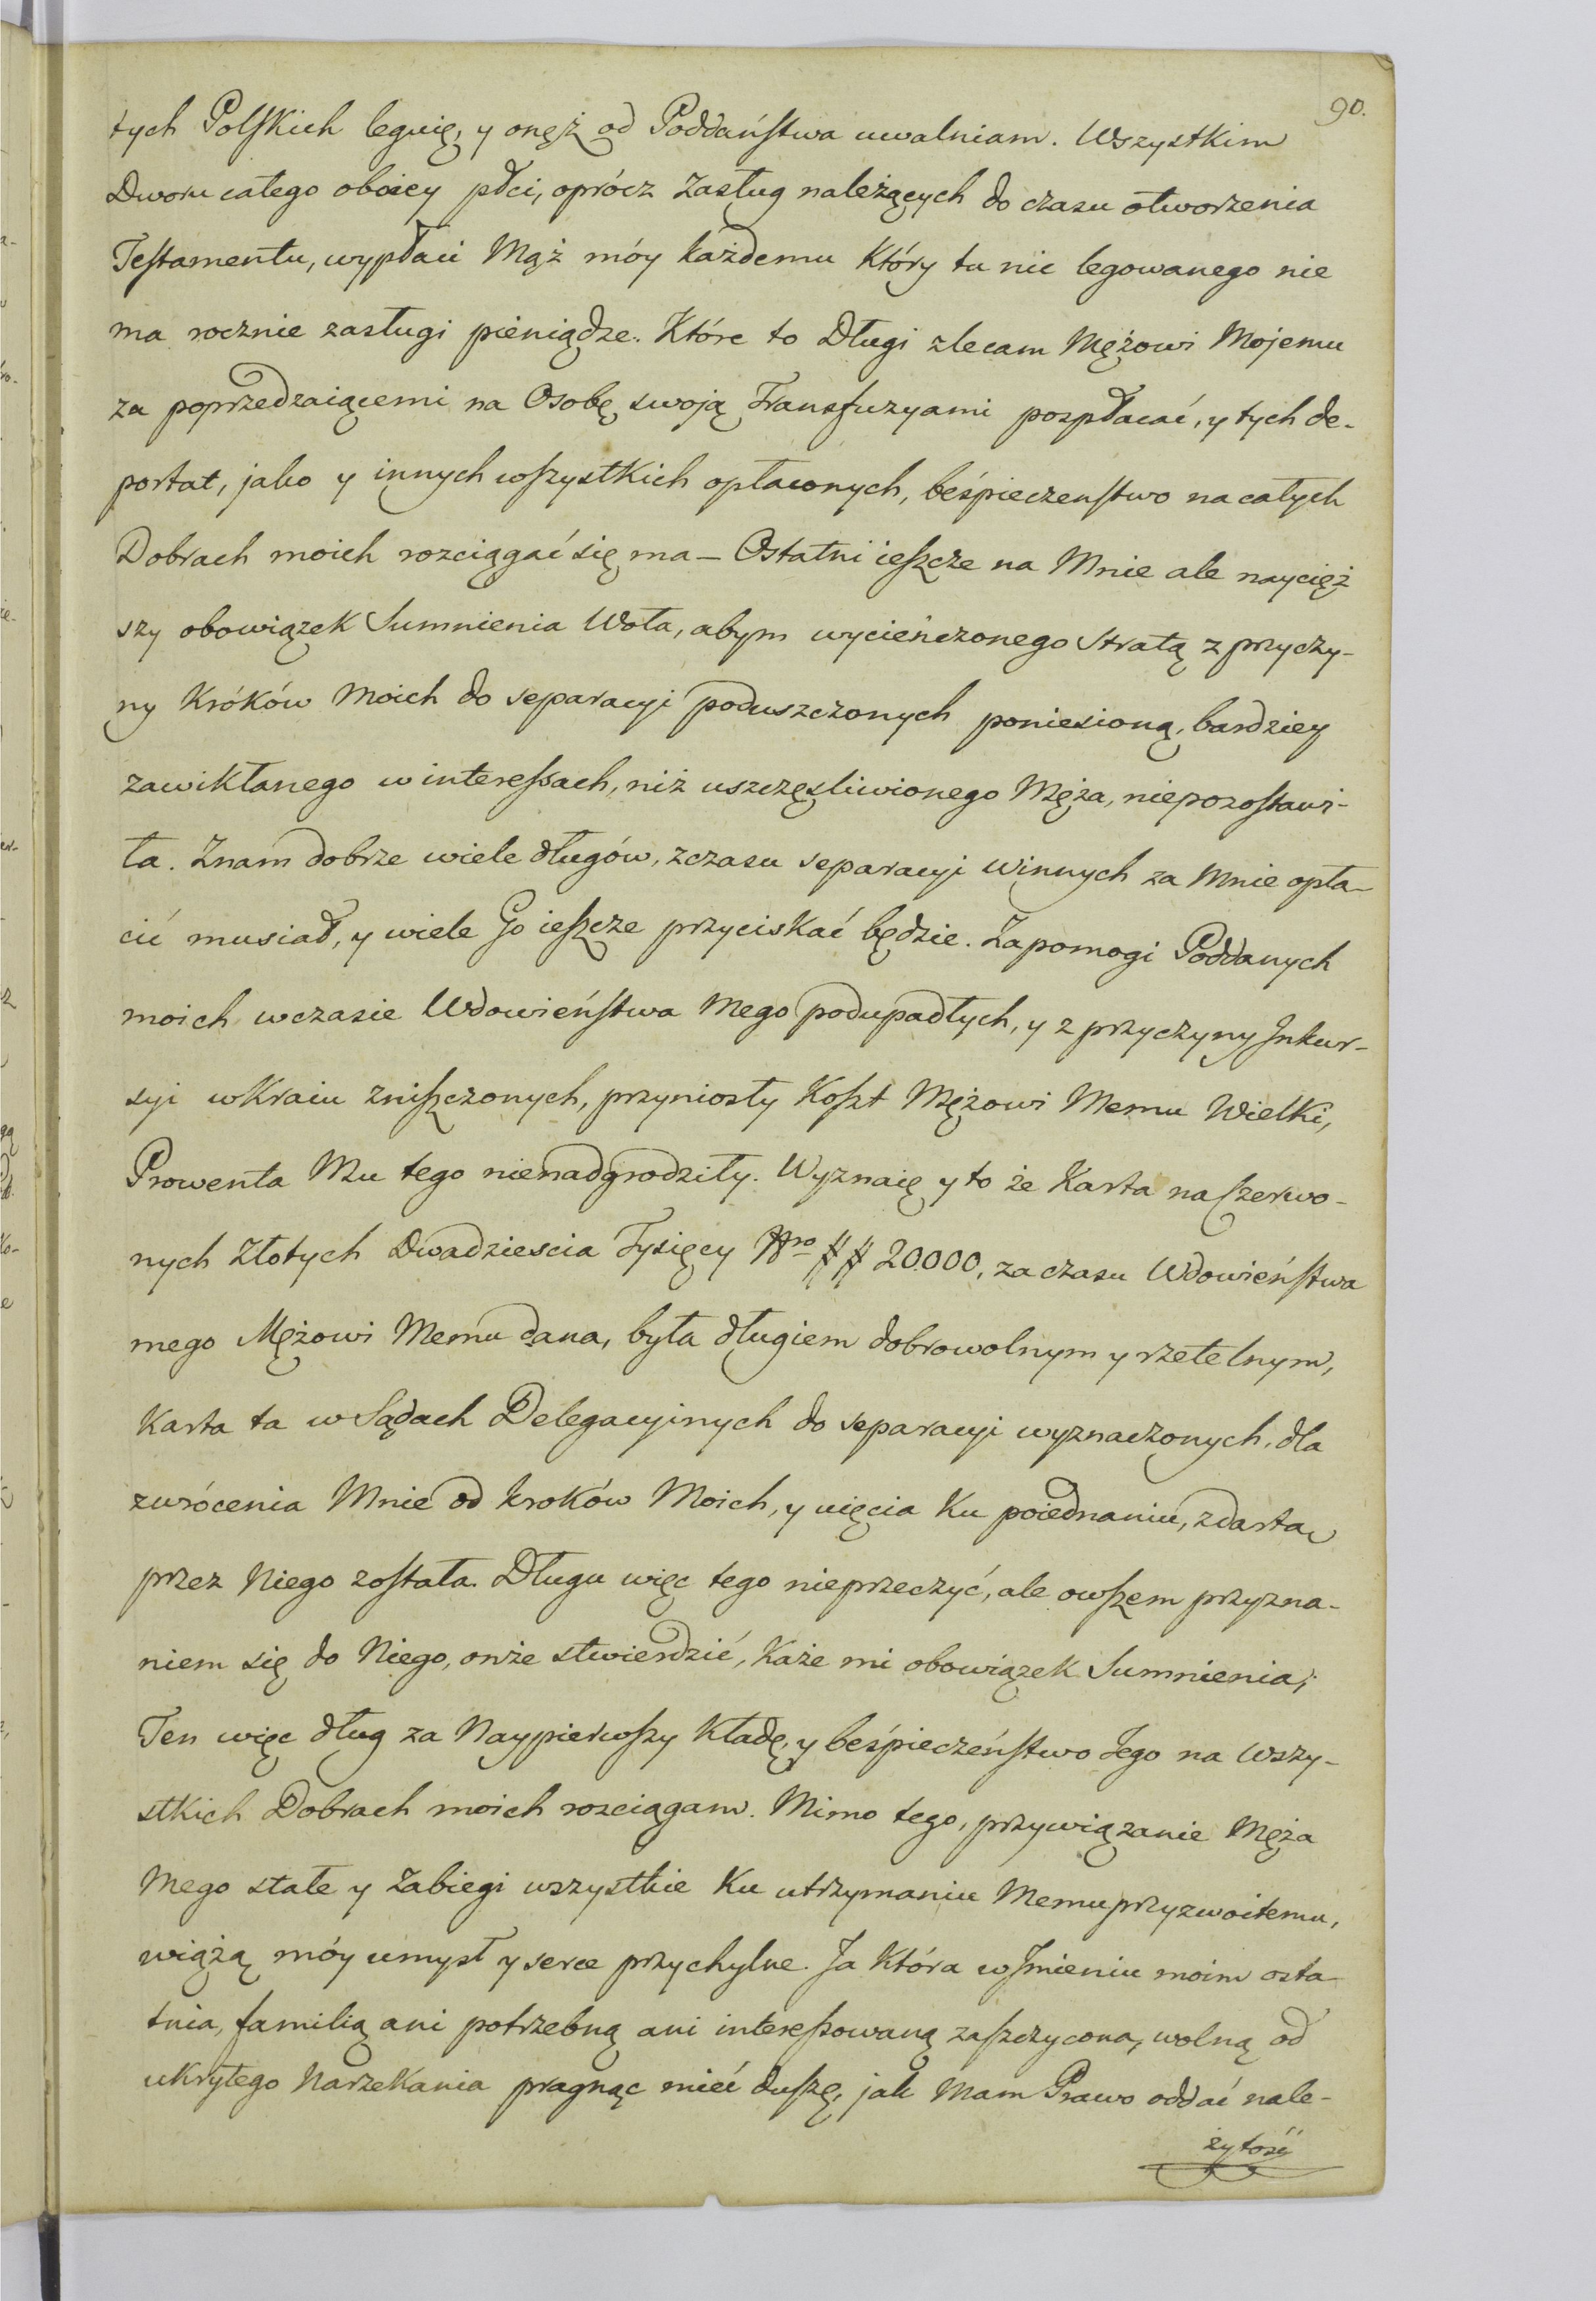 90.
tych Polskich leguię, y onęż od Poddaństwa uwalniam. Wszystkim
Dworu całego oboiey płci, oprócz zasług należących do czasu otworzenia
Testamentu, wypłaci Mąż móy każdemu Który tu nic legowanego nie
ma rocznie zasługi pieniądze. Które to Długi zlecam Mężowi Mojemu
za poprzedzaiącemi na Osobę swoją Transfuzyami pospłacać, y tych de-
portat, jako y innych wszystkich opłaconych, beśpieczenstwo na całych
Dobrach moich rozciągać się ma — Ostatni ieszcze na Mnie ale naycięż
szy obowiązek Sumnienia Woła, abym wycieńczonego Stratą z przyczy-
ny Króków Moich do separacyi poduszczonych poniesioną, bardziey
zawikłanego w interessach, niż uszczęsliwionego Męża, niepozostawi-
ła. Znam dobrze wiele długów, zczasu separacyi Winnych za Mnie opła-
cić musiał, y wiele Go ieszcze przyciskać będzie. Zapomogi Poddanych
moich wczasie Wdowieństwa Mego podupadłych, y z przyczyny Inkur-
syi wKraiu zniszczonych, przyniosły Koszt Mężowi Memu Wielki,
Prowenta Mu tego nienadgrodziły. Wyznaię y to że Karta na Czerwo-
nych Złotych Dwadziescia Tysięcy Nro ## 20.000, za czasu Wdowieństwa
mego Mężowi Memu dana, była długiem dobrowolnym y rzetelnym,
Karta ta w Sądach Delegacyinych do separacyi wyznaczonych, dla
zwrócenia Mnie od kroków Moich, y uięcia Ku poiednaniu, zdarta
przez Niego została. Długu więc tego nieprzeczyć, ale owszem przyzna-
niem się do Niego, onże stwierdzić, Każe mi obowiązek Sumnienia;
Ten więc dług za Naypierwszy Kładę, y beśpieczeństwo Jego na Wszy-
stkich Dobrach moich rozciągam. Mimo tego, przywiązanie Męża
Mego stałe y Zabiegi wszystkie Ku utrzymaniu Memu przyzwoitemu,
wiążą móy umysł y serce przychylne. Ja Która w Imieniu moim osta-
tnia, familią ani potrzebną ani interessowaną zaszczycona, wolną od
ukrytego Narzekania pragnąc mieć duszę, jak Mam Prawo oddać nale-
żytość